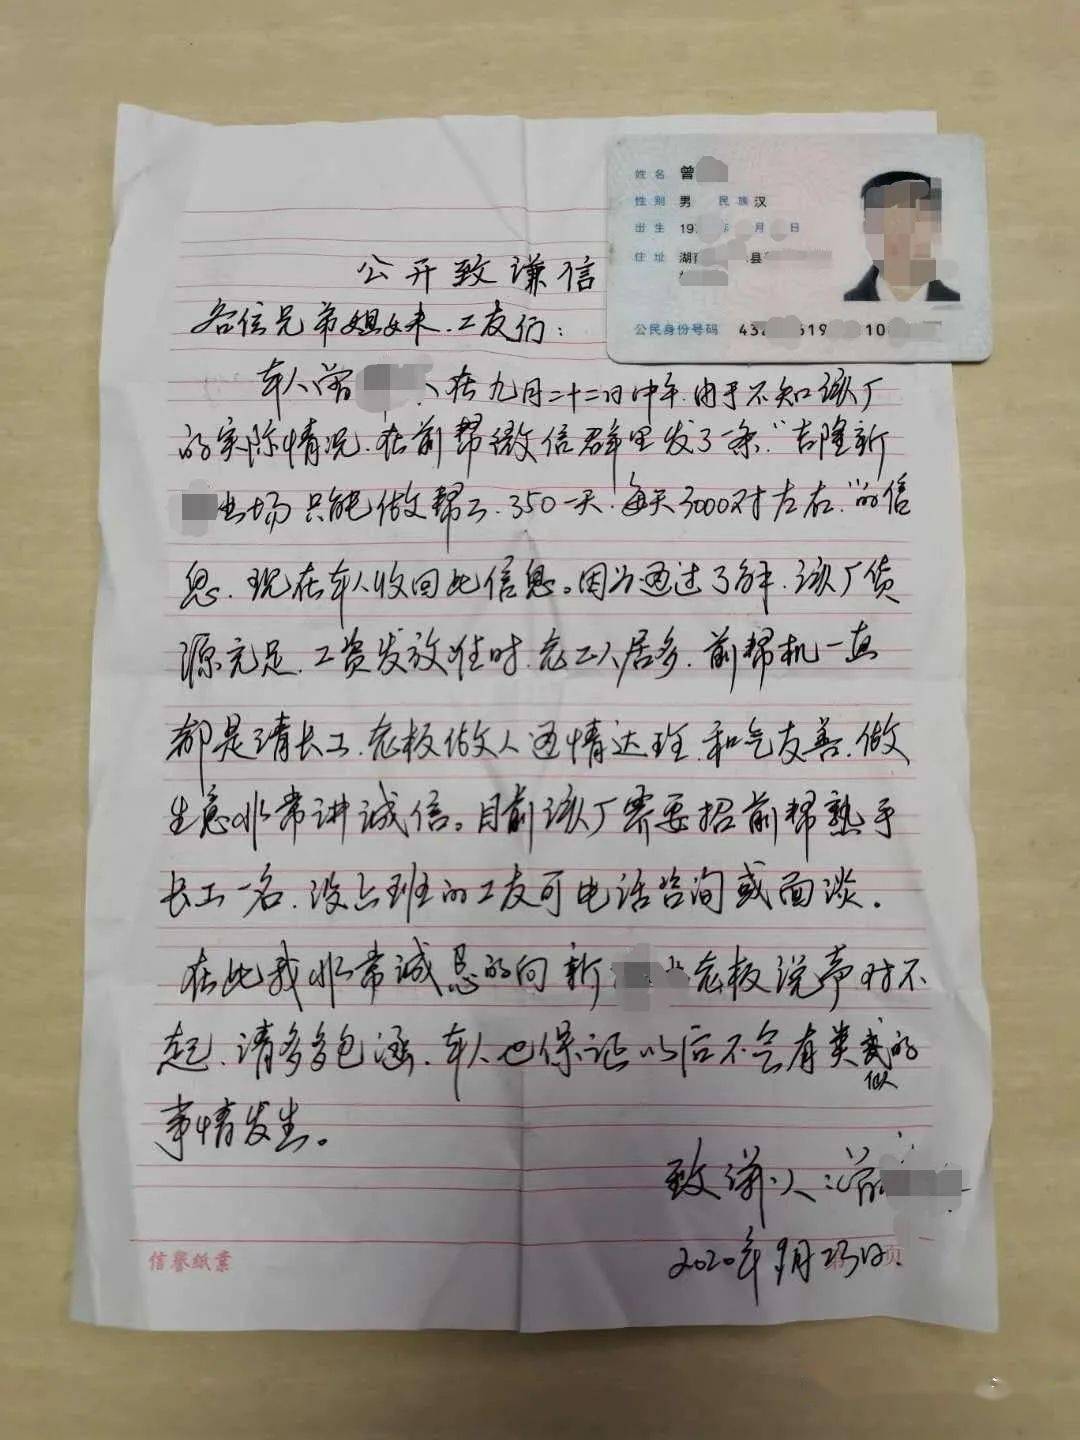 姓名 曾
性别 男 民族 汉
出生 197 年 月 日
住址 湖 县
公民身份号码 43 519 10
公开致谦信
各位兄弟姐妹、工友们:
本人曾 在九月二十二日中午.由于不知该厂
的实际情况.在前帮微信群里发了一条“吉隆新
出场只能做帮工.350一天.每天3000对左右”的信
息.现在本人收回此信息。因为通过了解.该厂货
源充足.工资发放准时.老工人居多.前帮机一直
都是请长工.老板做人通情达理.和气友善.做
生意非常讲诚信。目前该厂需要招前帮熟手
长工一名.没上班的工友可电话咨询或面谈.
在此我非常诚恳的向新 老板说声对不
起.请多多包涵.本人也保证以后不会有类似的
事情发生。
致谦人:曾
2020年9月23日
信誉纸業
页